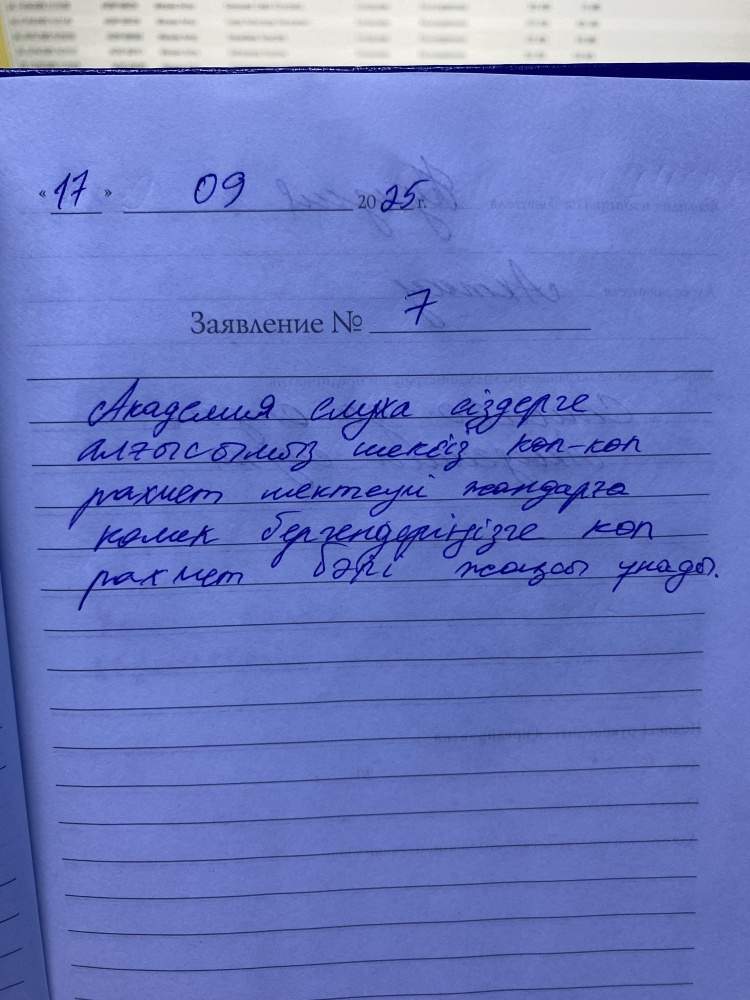 «17» 09 2025 г.
Заявление № 7
Академия слуха сіздерге
алғысымыз шексіз көп-көп
рахмет шектеулі жандарға
көмек бергендеріңізге көп
рахмет бәрі жақсы ұнады.